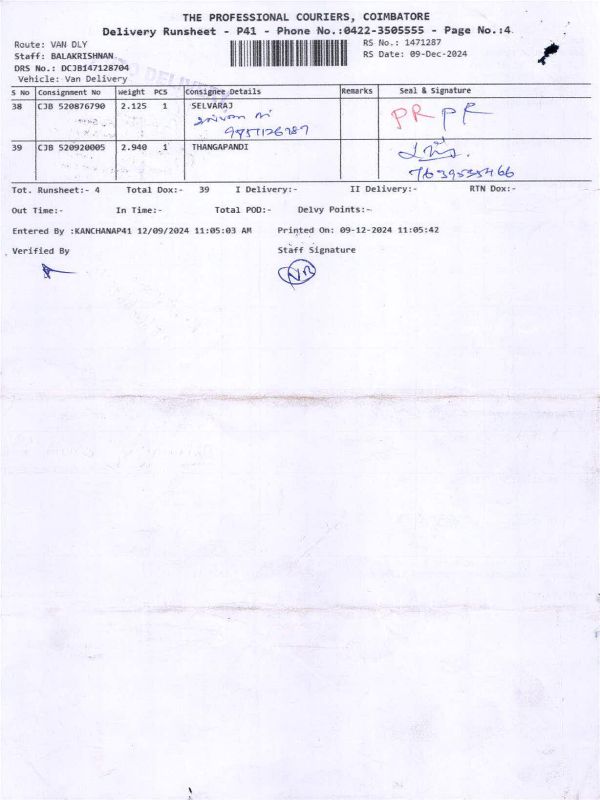 THE PROFESSIONAL COURIERS, COIMBATORE
Delivery Runsheet - P41 - Phone No.:0422-3505555 - Page No.:4
Route: VAN DLY
RS No.: 1471287
Staff: BALAKRISHNAN
RS Date: 09-Dec-2024
DRS No.: DCJB147128704
Vehicle: Van Delivery
S No Consignment No Weight PCS Consignee Details Remarks Seal & Signature
38 CJB 520876790 2.125 1 SELVARAJ
PR PR
39 CJB 520920005 2.940 1 THANGAPANDI
7639535466
Tot. Runsheet:- 4 Total Dox:- 39 I Delivery:- II Delivery:- RTN Dox:-
Out Time:- In Time:- Total POD:- Delvy Points:-
Entered By :KANCHANAP41 12/09/2024 11:05:03 AM Printed On: 09-12-2024 11:05:42
Verified By Staff Signature